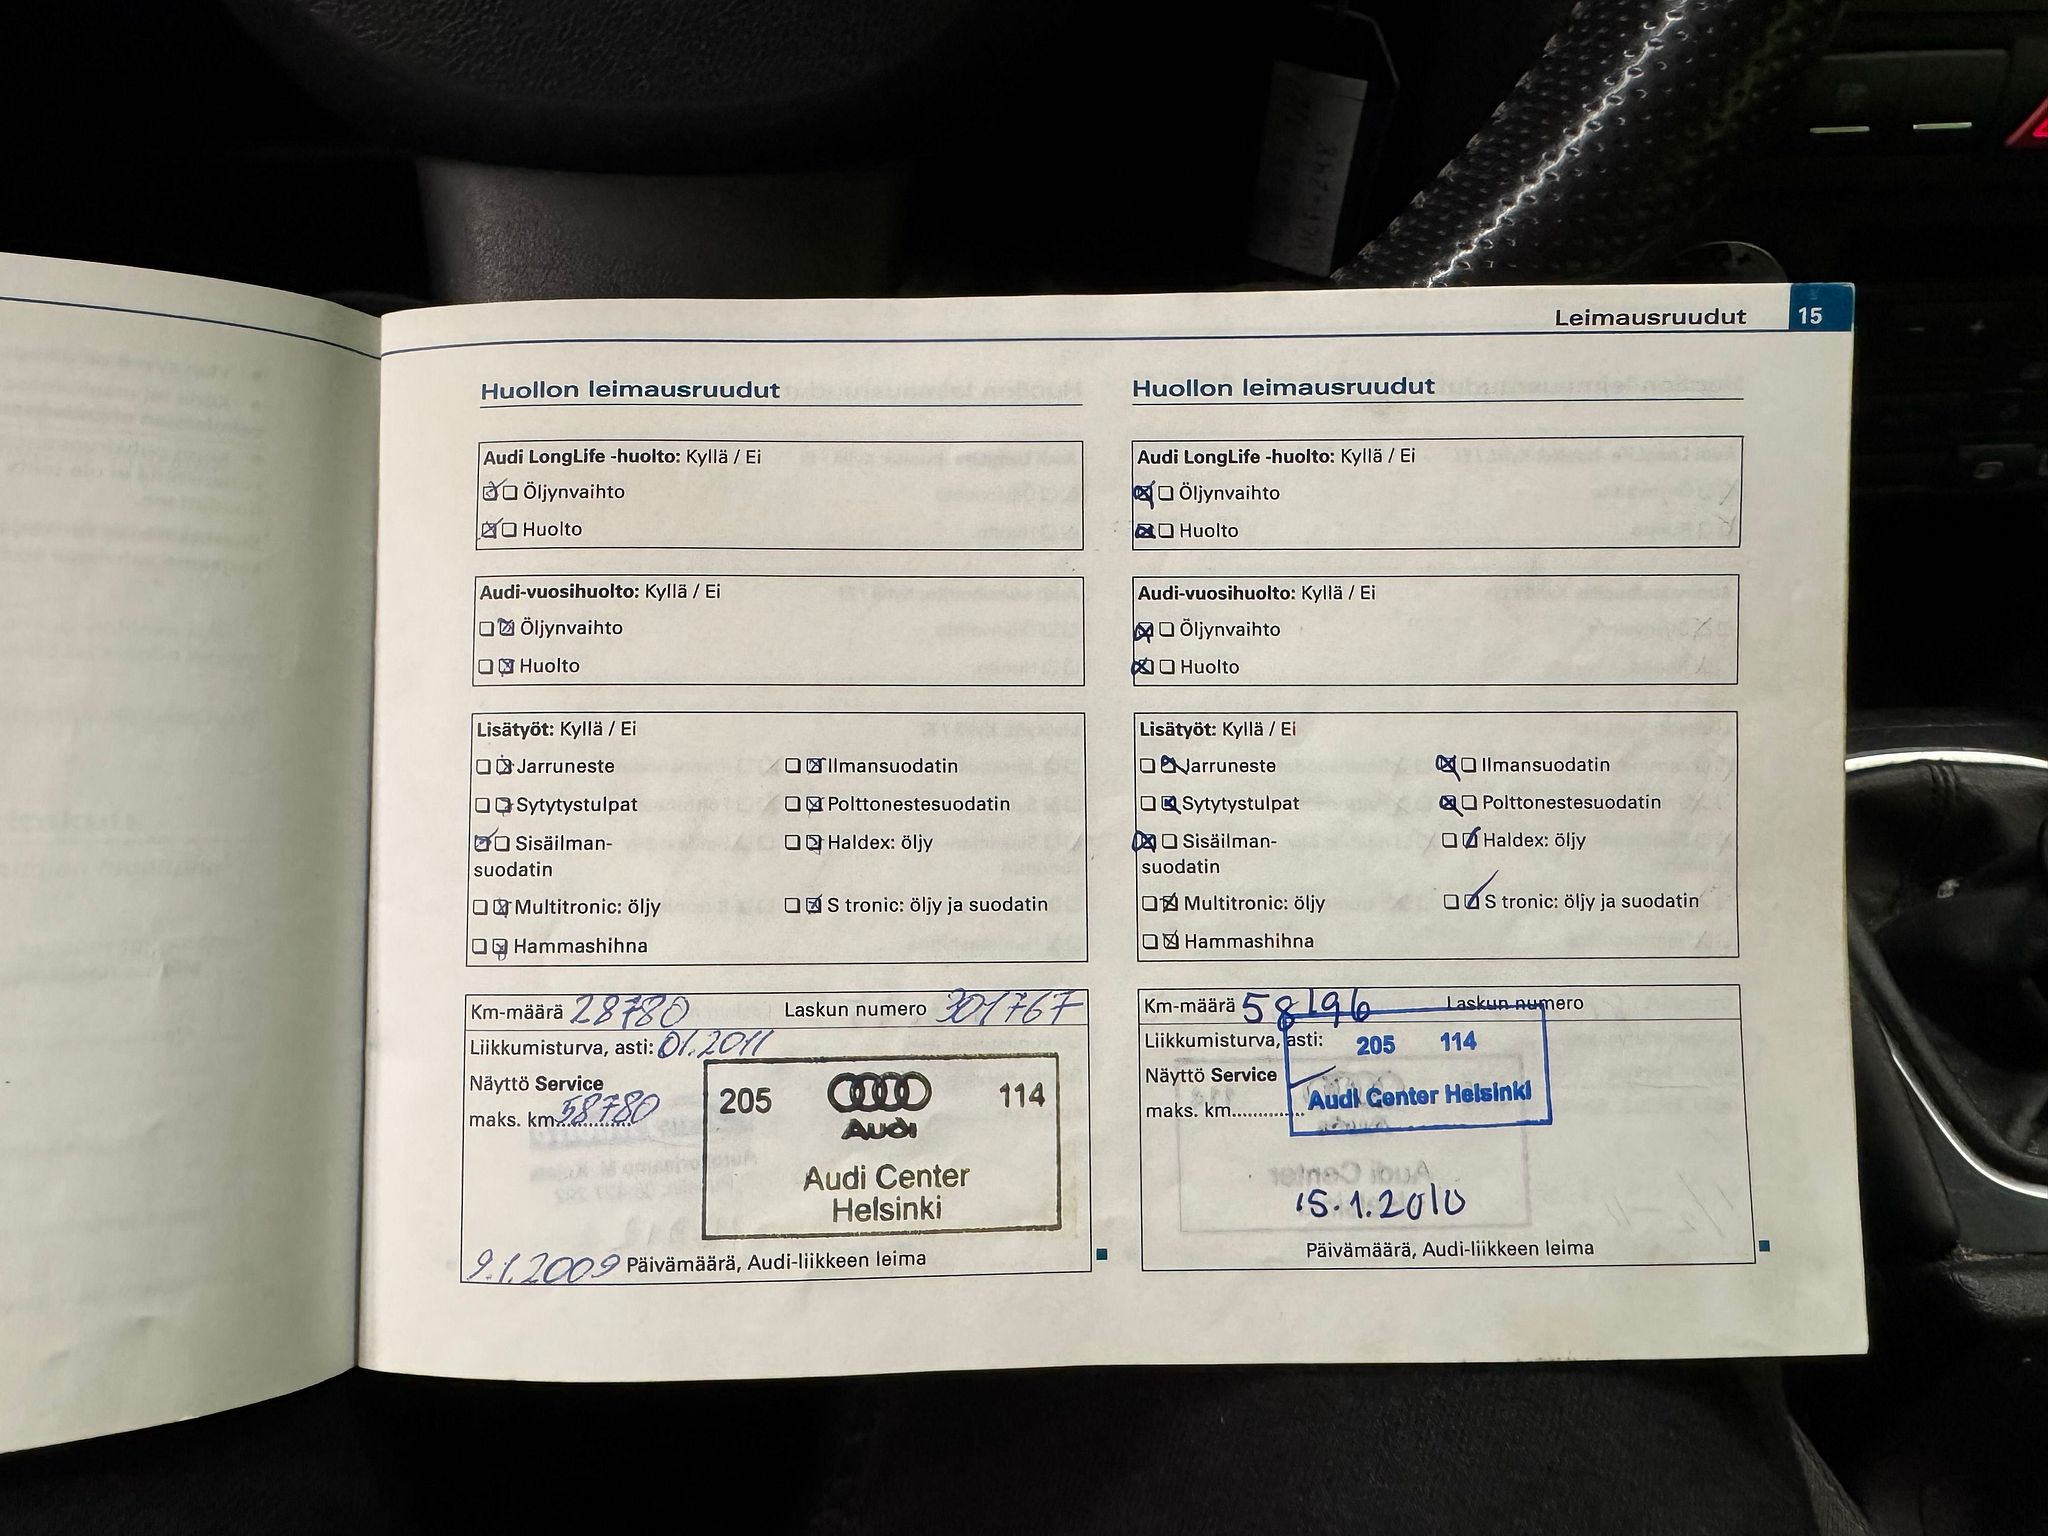 Leimausruudut 15
Huollon leimausruudut
Audi LongLife -huolto: Kyllä / Ei
Öljynvaihto
Huolto
Audi-vuosihuolto: Kyllä / Ei
Öljynvaihto
Huolto
Lisätyöt: Kyllä / Ei
Jarruneste Ilmansuodatin
Sytytystulpat Polttonestesuodatin
Sisäilman- Haldex: öljy
suodatin
Multitronic: öljy S tronic: öljy ja suodatin
Hammashihna
Km-määrä 28780 Laskun numero 301767
Liikkumisturva, asti: 01.2011
Näyttö Service
maks. km 58780
205 114
Audi
Audi Center
Helsinki
9.1.2009 Päivämäärä, Audi-liikkeen leima
Huollon leimausruudut
Audi LongLife -huolto: Kyllä / Ei
Öljynvaihto
Huolto
Audi-vuosihuolto: Kyllä / Ei
Öljynvaihto
Huolto
Lisätyöt: Kyllä / Ei
Jarruneste Ilmansuodatin
Sytytystulpat Polttonestesuodatin
Sisäilman- Haldex: öljy
suodatin
Multitronic: öljy S tronic: öljy ja suodatin
Hammashihna
Km-määrä 58196 Laskun numero
Liikkumisturva, asti:
205 114
Näyttö Service
maks. km............
Audi Center Helsinki
15.1.2010
Päivämäärä, Audi-liikkeen leima